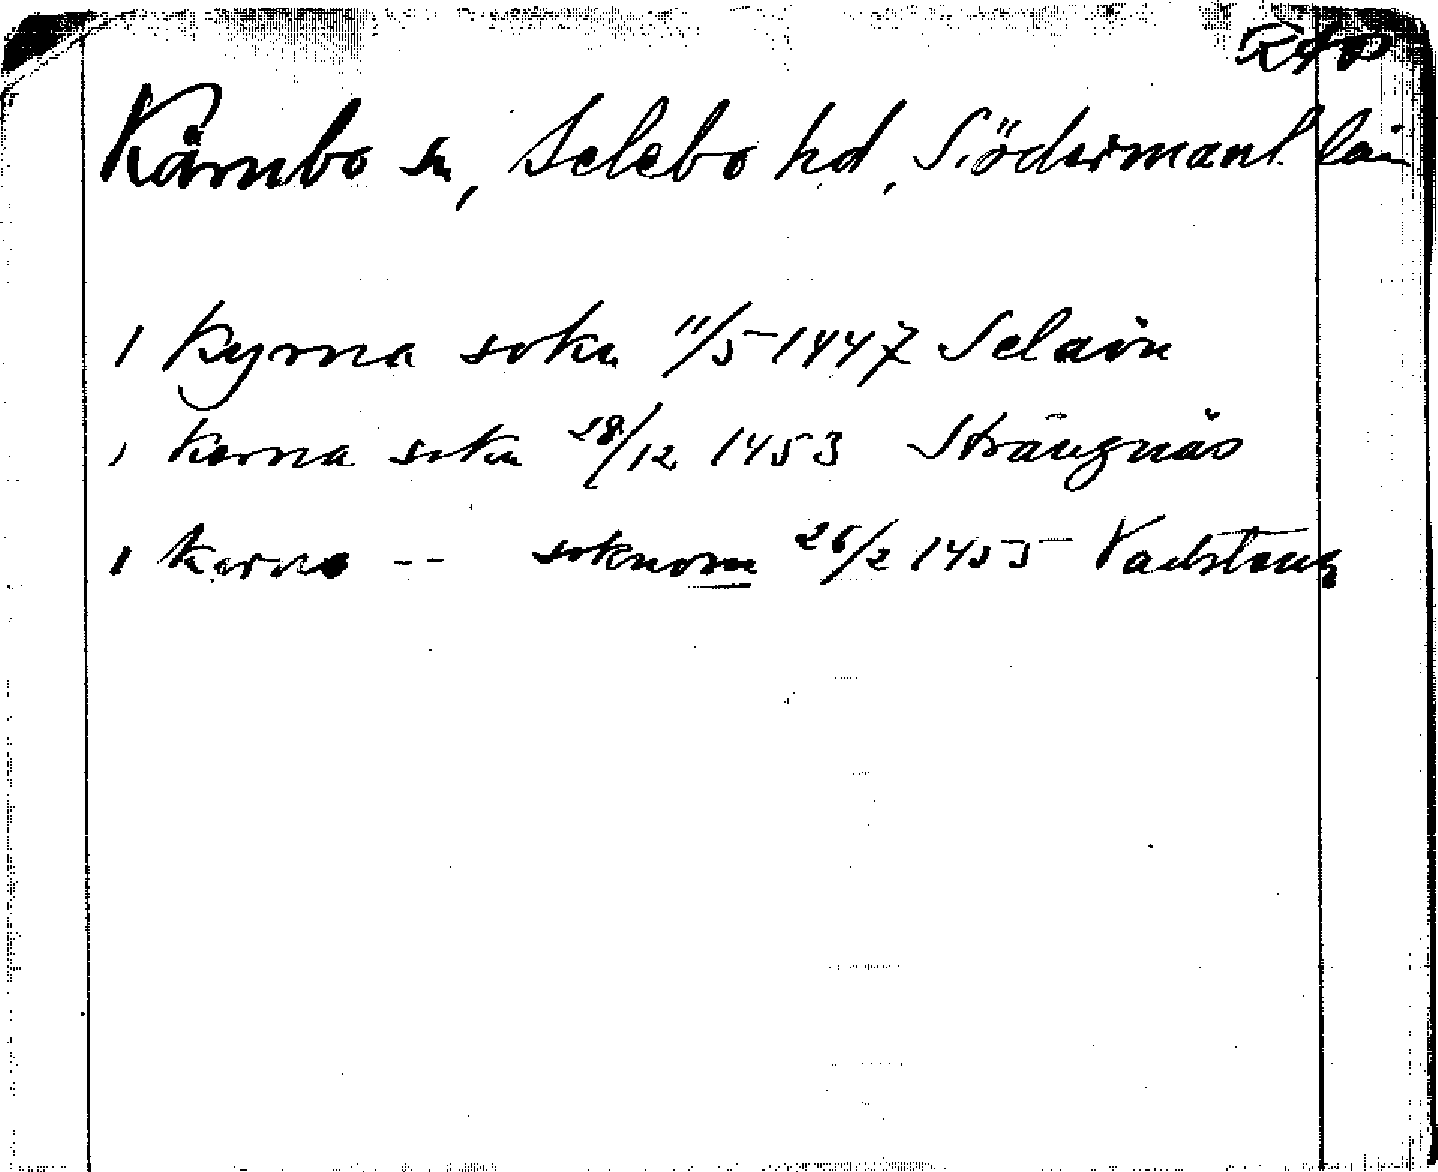 Kärnbo sn, Selebo hd, Södermanl. län
1 Kyrna sokn 11/5 1447 Selaön
1 kerna sokn 28/12 1453 Strängnäs
1 kerna -- soknom 26/2 1455 Vadstena